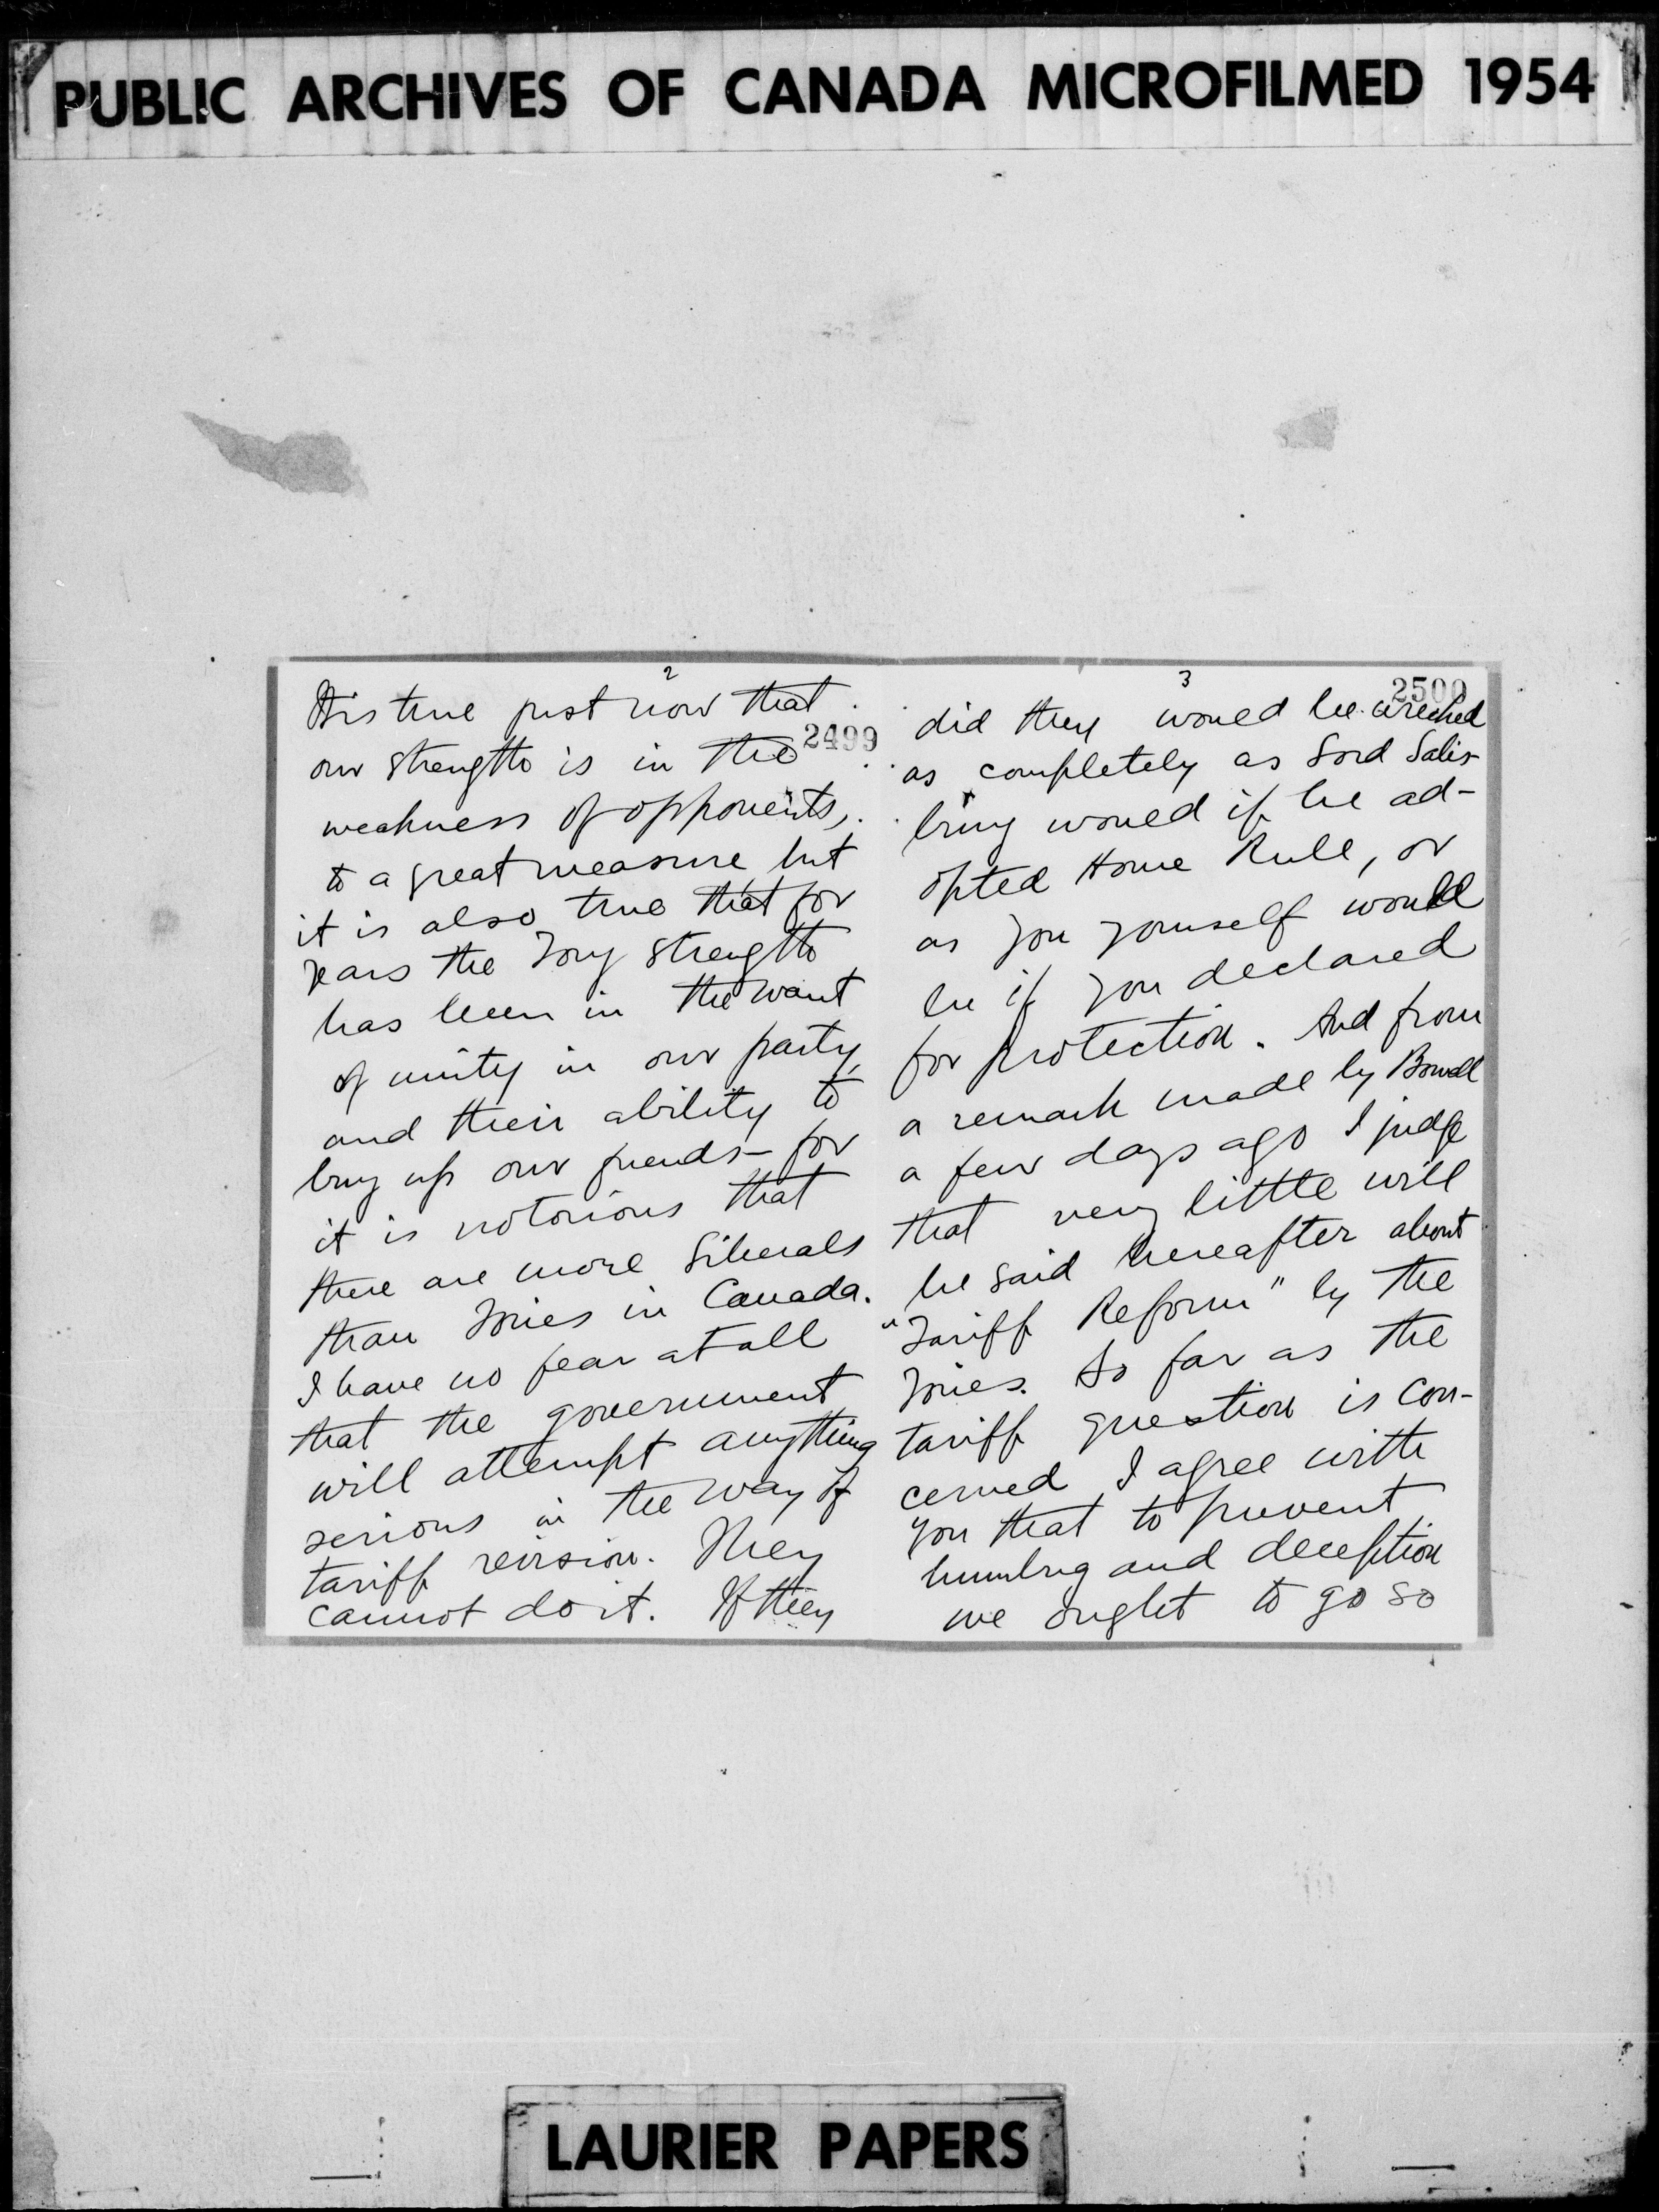 PUBLIC ARCHIVES OF CANADA MICROFILMED 1954
2
2499
It is true just now that
our strength is in the
weakness of opponents,
to a great measure but
it is also true that for
years the Tory strength
has been in the want
of unity in our party,
and their ability to
buy up our friends - for
it is notorious that
there are more Liberals
than Tories in Canada.
I have no fear at all
that the government
will attempt anything
serious in the way of
tariff revision. They
cannot do it. If they
3
2500
did they would be wrecked
as completely as Lord Salis-
bury would if he ad-
opted Home Rule, or
as you yourself would
be if you declared
for protection. And from
a remark made by Bowell
a few days ago I judge
that very little will
be said hereafter about
"Tariff Reform" by the
Tories. So far as the
tariff question is con-
cerned I agree with
you that to prevent
humbug and deception
we ought to go so
LAURIER PAPERS